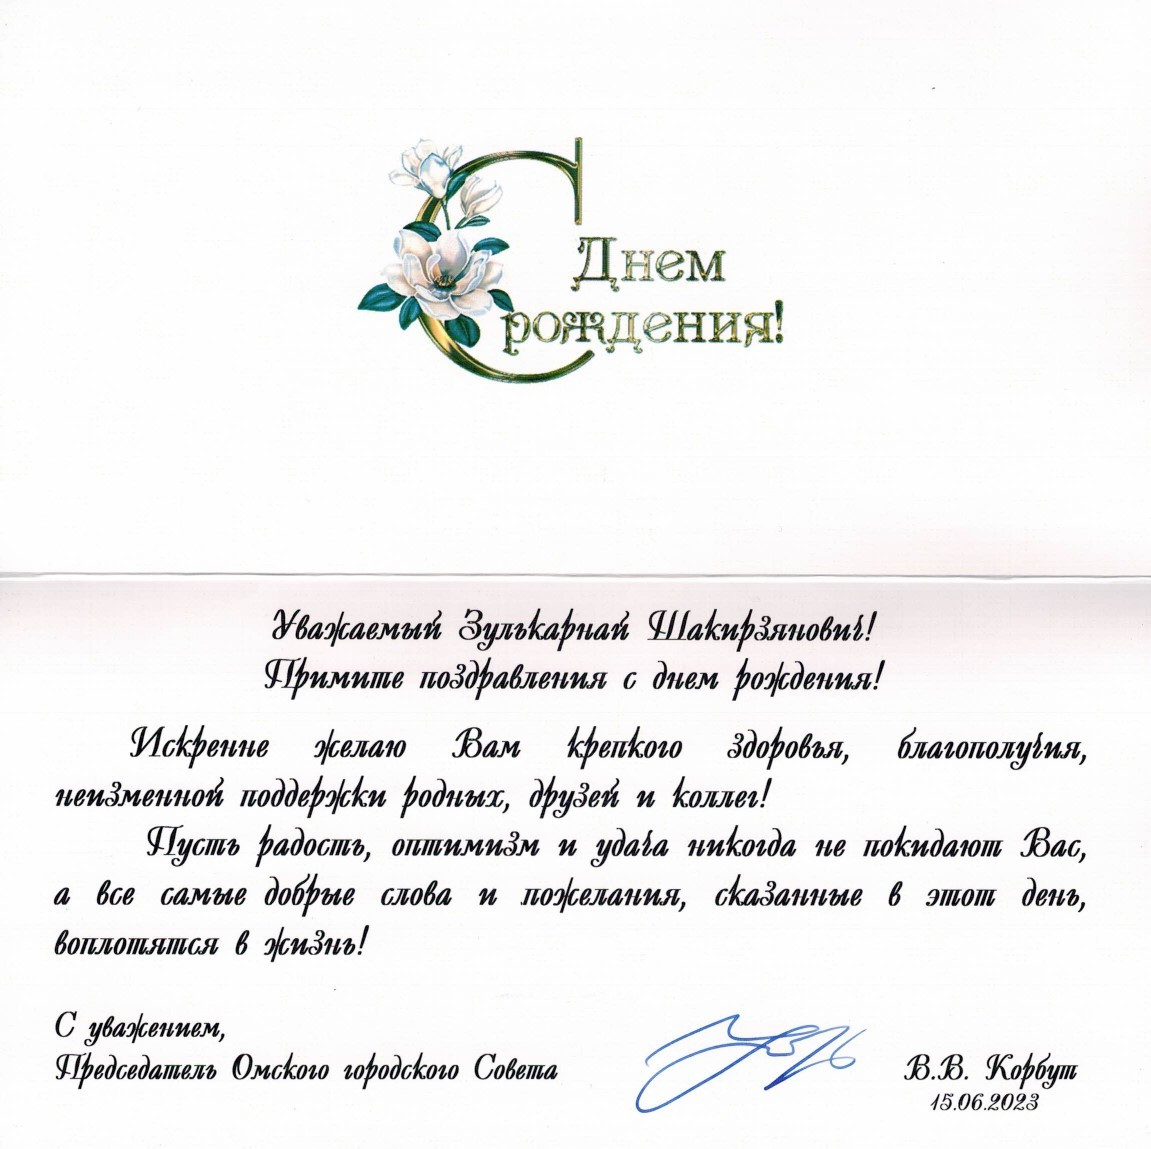 С Днем
рождения!
Уважаемый Зулькарнай Шакирзянович!
Примите поздравления с днем рождения!
Искренне желаю Вам крепкого здоровья, благополучия,
неизменной поддержки родных, друзей и коллег!
Пусть радость, оптимизм и удача никогда не покидают Вас,
а все самые добрые слова и пожелания, сказанные в этот день,
воплотятся в жизнь!
С уважением,
Председатель Омского городского Совета
В.В. Корбут
15.06.2023